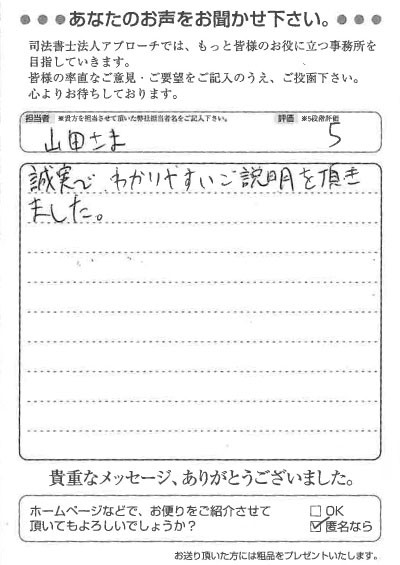 ●●●●あなたのお声をお聞かせ下さい。●●●●
司法書士法人アプローチでは、もっと皆様のお役に立つ事務所を
目指していきます。
皆様の率直なご意見・ご要望をご記入のうえ、ご投函下さい。
心よりお待ちしております。
担当者 ※貴方を担当させて頂いた弊社担当者名をご記入下さい。 評価 ※5段階評価
山田さま 5
誠実で わかりやすいご説明を頂き
ました。
貴重なメッセージ、ありがとうございました。
ホームページなどで、お便りをご紹介させて
頂いてもよろしいでしょうか？
□ OK
☑ 匿名なら
お送り頂いた方には粗品をプレゼントいたします。